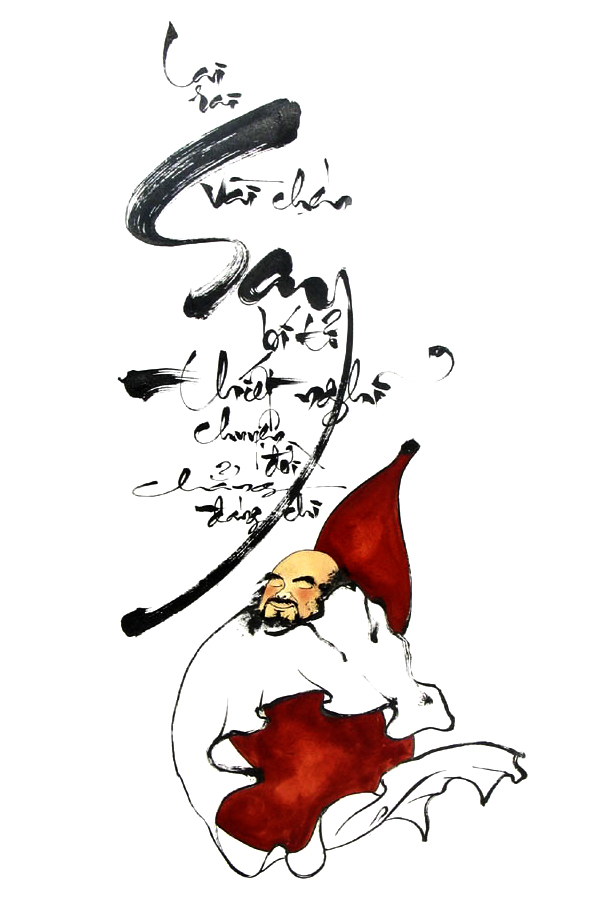 Lai
rai
vài chén
Say
bí tỉ
thiết nghĩ
chuyện
đời
chẳng
đáng chi